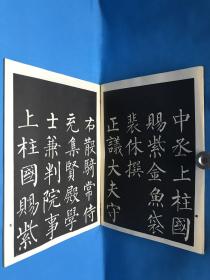 中丞上柱國
賜紫金魚袋
裴休撰
正議大夫守
右散騎常侍
充集賢殿學
士兼判院事
上柱國賜紫